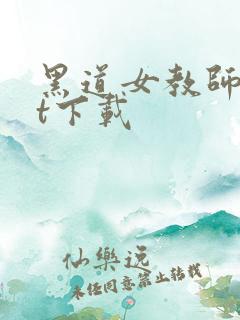 黑道女教師
t下載
仙樂逸
未经同意禁止转载